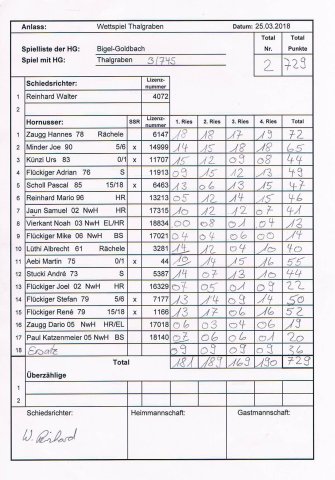 Anlass: Wettspiel Thalgraben Datum: 25.03.2018
Total Total
Spielliste der HG: Bigel-Goldbach Nr. Punkte
Spiel mit HG: Thalgraben 3/745 2 729
Schiedsrichter: Lizenz-nummer
1 Reinhard Walter 4072
2
Hornusser: SSR Lizenz-nummer 1. Ries 2. Ries 3. Ries 4. Ries Total
1 Zaugg Hannes 78 Rächele 6147 18 18 17 19 72
2 Minder Joe 90 5/6 x 14999 14 15 18 18 65
3 Künzi Urs 83 0/1 x 11707 15 12 09 08 44
4 Flückiger Adrian 76 S 11913 09 15 12 13 49
5 Scholl Pascal 85 15/18 x 6463 13 06 13 15 47
6 Reinhard Mario 96 HR 13213 05 12 14 15 46
7 Jaun Samuel 02 NwH HR 17315 10 12 12 07 41
8 Vierkant Noah 03 NwH EL/HR 18834 00 08 01 04 13
9 Flückiger Mike 06 NwH BS 17021 04 04 06 00 14
10 Lüthi Albrecht 61 Rächele 3281 14 12 04 10 40
11 Aebi Martin 75 0/1 x 44 10 14 15 16 55
12 Stucki André 73 S 5387 14 07 13 10 44
13 Flückiger Joel 02 NwH HR 16329 07 05 01 09 22
14 Flückiger Stefan 79 5/6 x 7177 13 14 09 14 50
15 Flückiger René 79 15/18 x 1166 13 17 06 16 52
16 Zaugg Dario 05 NwH HR/EL 17018 06 03 04 06 19
17 Paul Katzenmeier 05 NwH BS 18140 07 06 06 01 20
18 Ersatz 09 09 09 09 36
Total 181 189 169 190 729
Überzählige
1
2
Schiedsrichter: Heimmannschaft: Gastmannschaft: